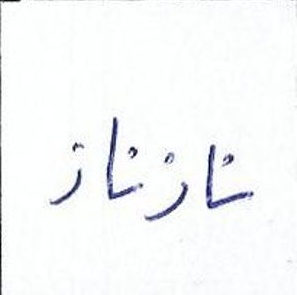 نازناز